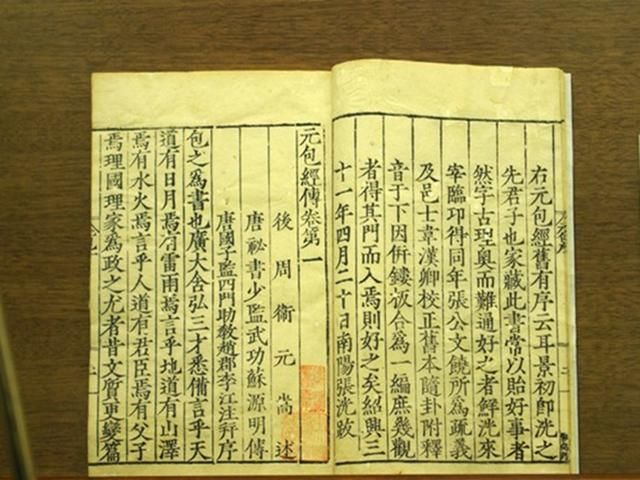 右元包經舊有序云耳景初即洸之
先君子也家藏此書常以貽好事者
然字古理奥而難通好之者鮮洸來
宰臨邛得同年張公文饒所爲疏義
及邑士韋漢卿校正舊本隨卦附釋
音于下因併鏤板合爲一編庶幾觀
者得其門而入焉則好之矣紹興三
十一年四月二十日南陽張洸跋
元包經傳卷第一
後周衞元嵩述
唐祕書少監武功蘇源明傳
唐國子監四門助教趙郡李江注幷序
包之爲書也廣大含弘三才悉備言乎天
道有日月焉有雷雨焉言乎地道有山澤
焉有水火焉言乎人道有君臣焉有父子
焉理國理家爲政之尤者昔文質更變篇